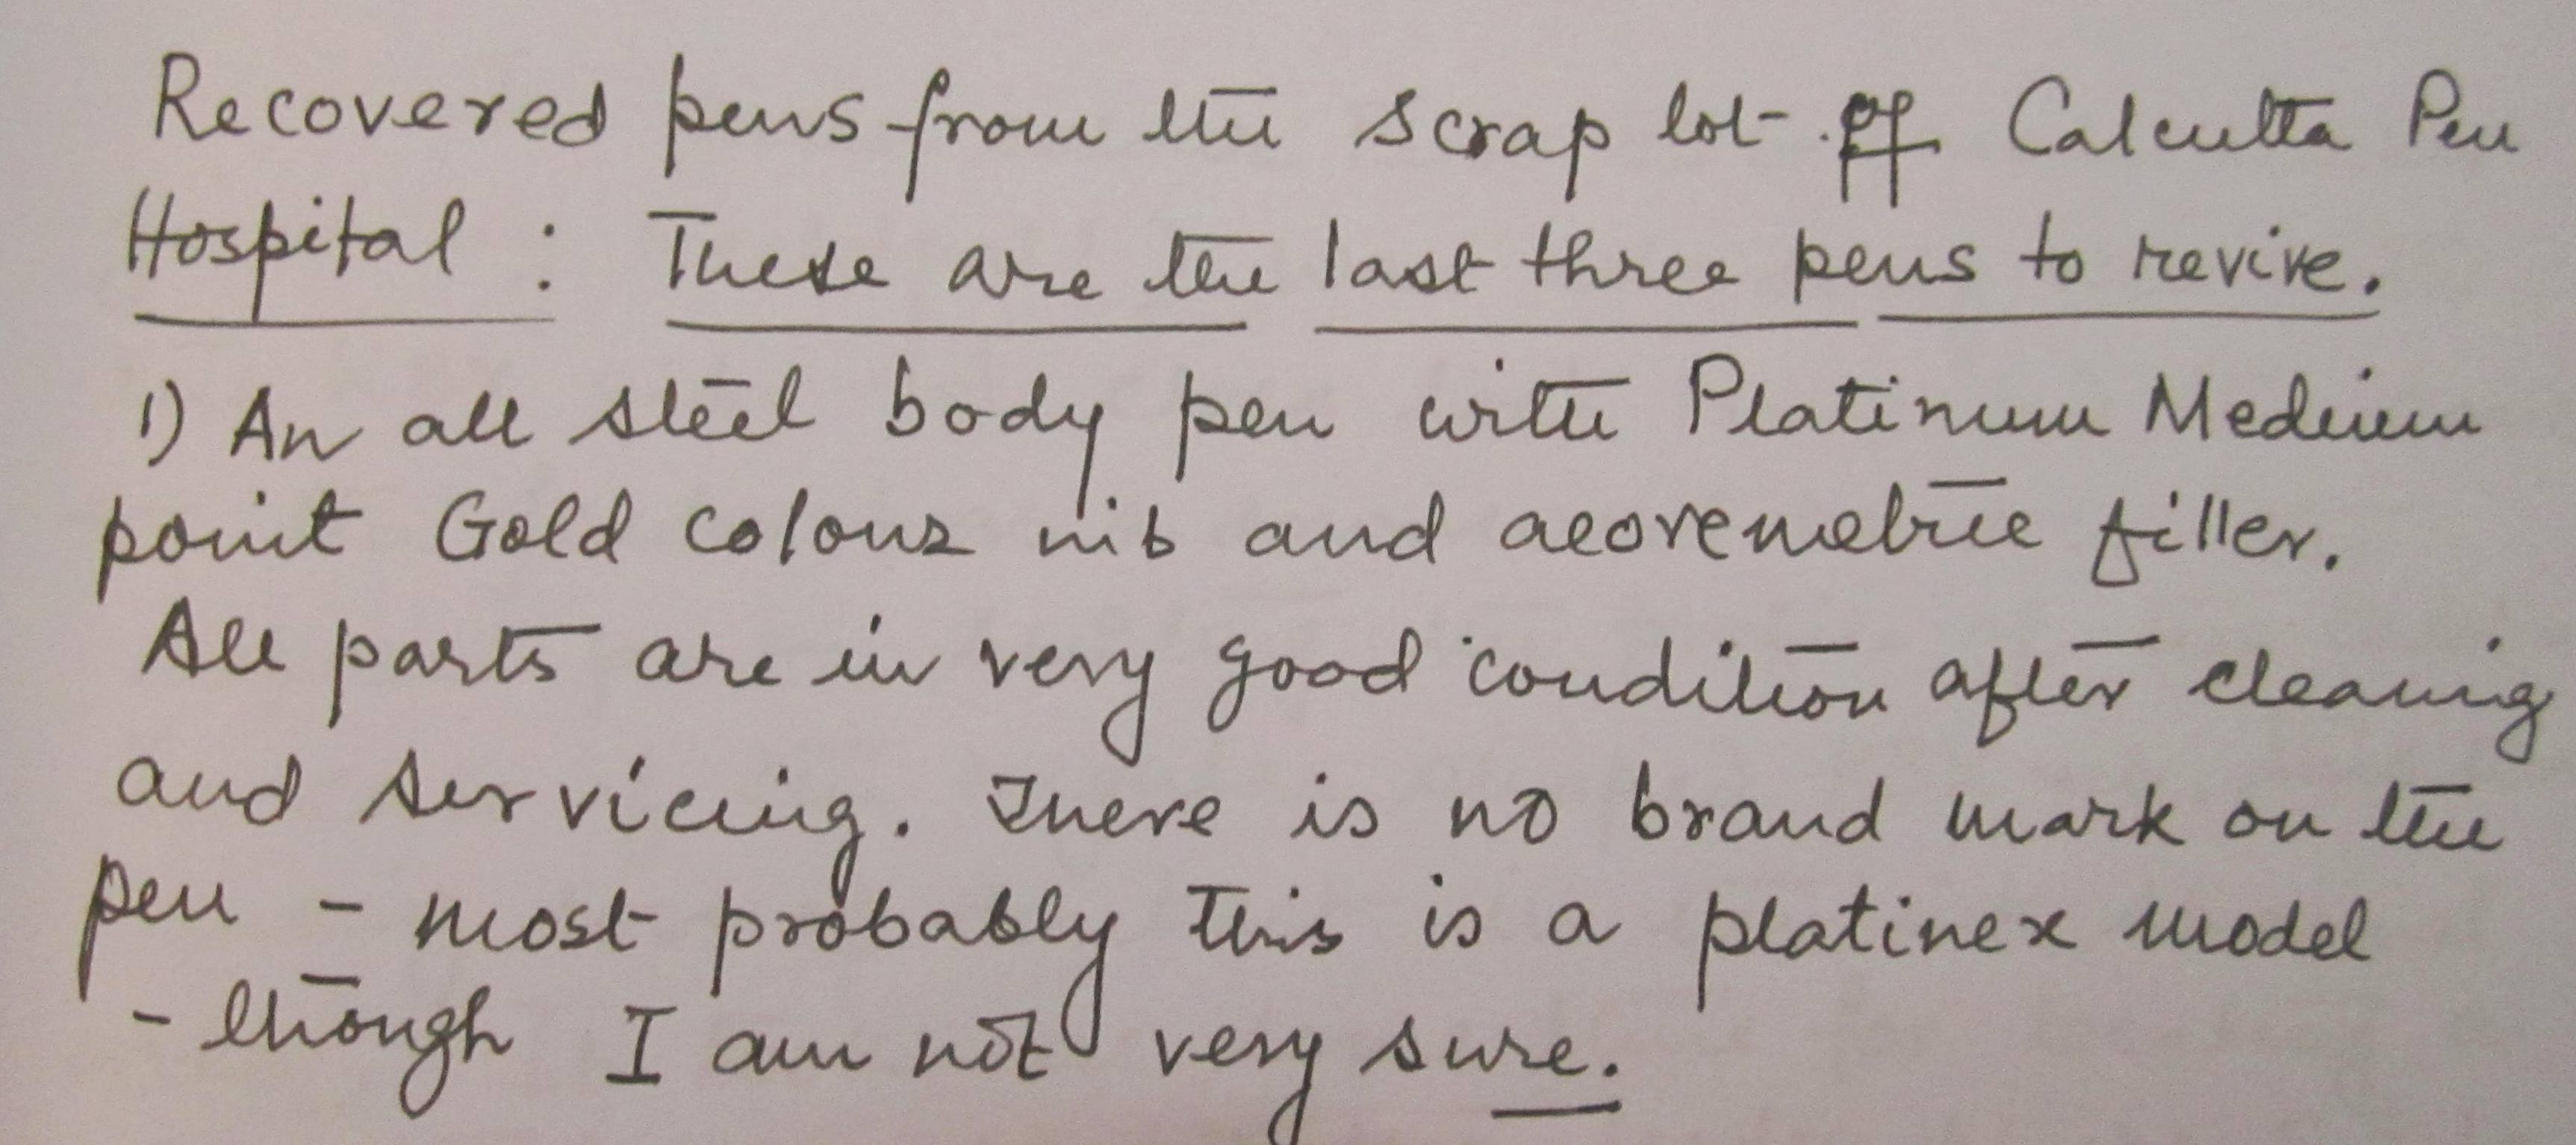 Recovered pens from the scrap lot of Calcutta Pen
Hospital : These are the last three pens to revive.
1) An all steel body pen with Platinum Medium
point Gold colour nib and aeoremetric filler.
All parts are in very good condition after cleaning
and servicing. There is no brand mark on the
pen - most probably this is a platinex model
- though I am not very sure.